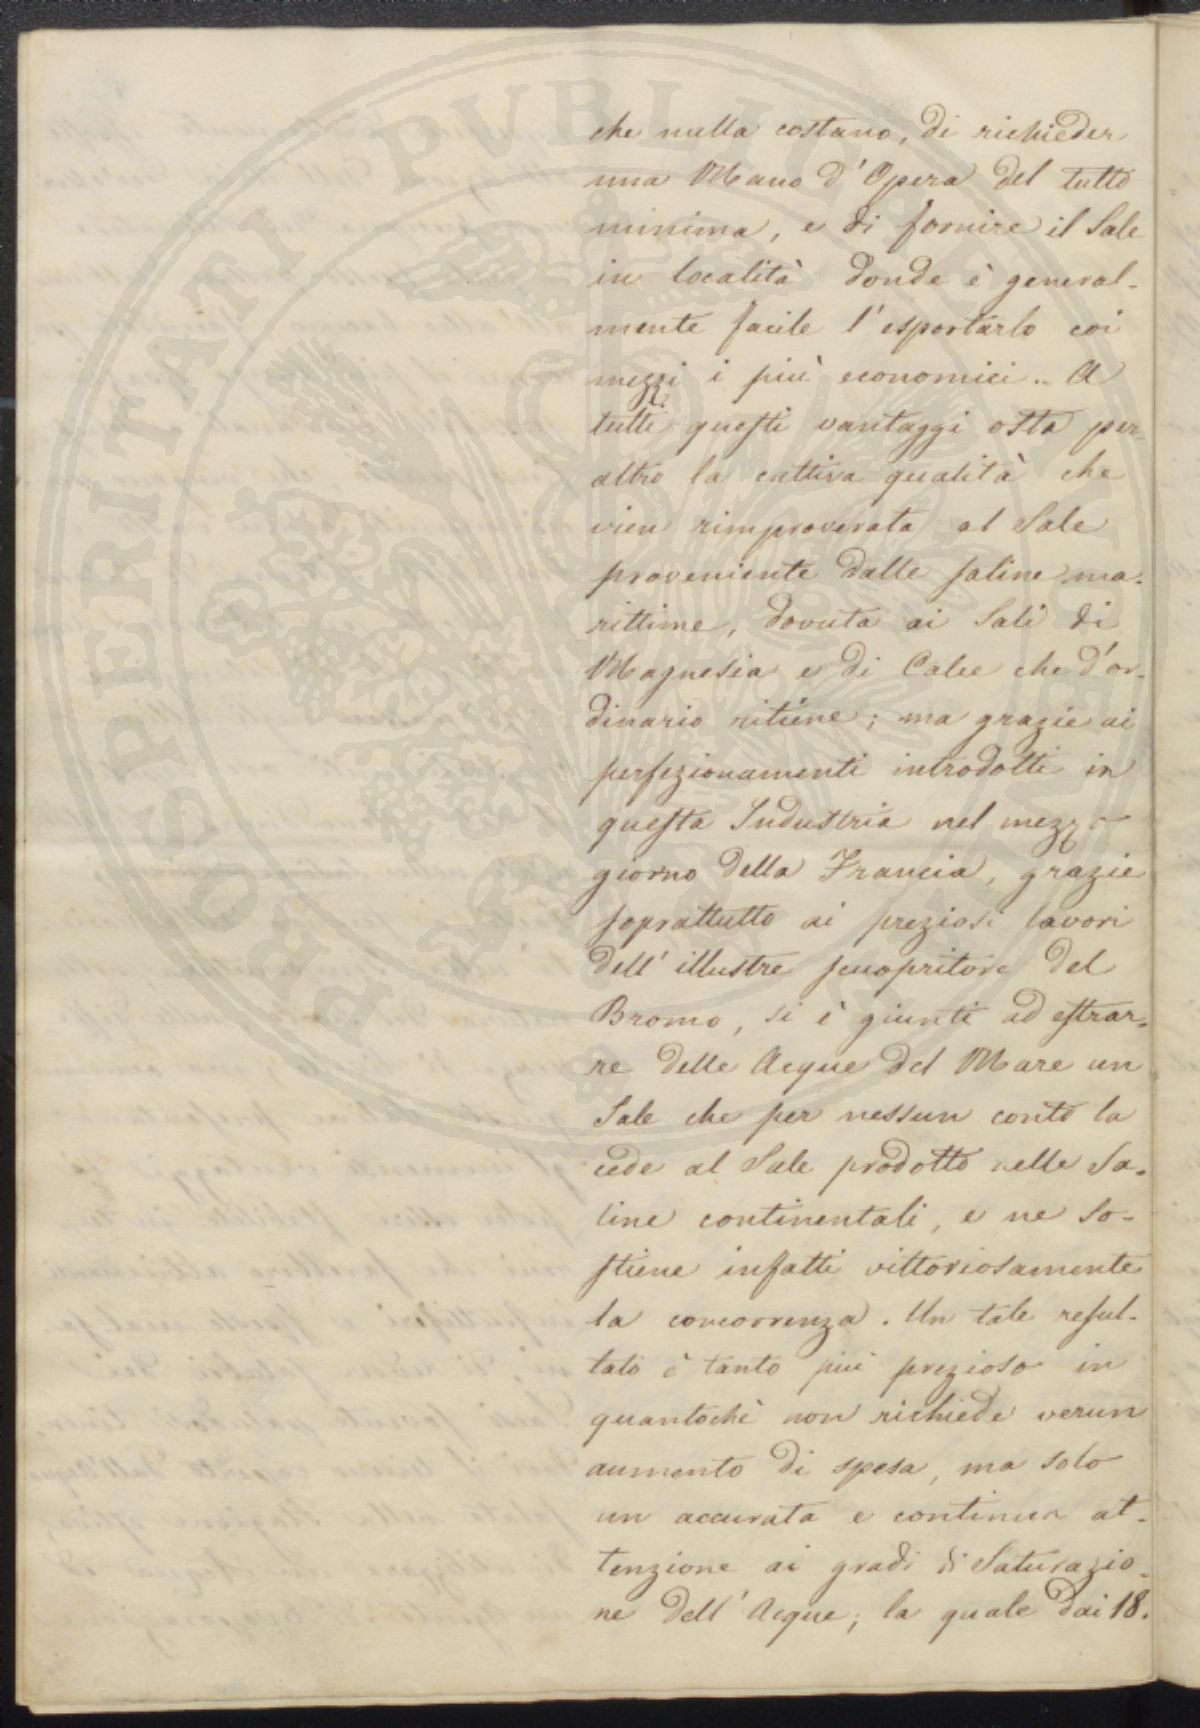 che nulla costano, di richieder
una Mano d'Opera del tutto
minima, e di fornire il Sale
in località donde è general-
mente facile l'esportarlo coi
mezzi i più economici.. A
tutti questi vantaggi osta per
altro la cattiva qualità che
vien rimproverata al Sale
proveniente dalle saline ma-
rittime, dovuta ai Sali di
Magnesia e di Calce che d'or-
dinario ritiene; ma grazie ai
perfezionamenti introdotti in
questa Industria nel mezzo
giorno della Francia, grazie
soprattutto ai preziosi lavori
dell'illustre scuopritore del
Bromo, si è giunti ad estrar-
re delle Acque del Mare un
Sale che per nessun conto la
cede al Sale prodotto nelle Sa-
line continentali, e ne so-
stiene infatti vittoriosamente
la concorrenza. Un tale resul-
tato è tanto più prezioso in
quantochè non richiede verun
aumento di spesa, ma solo
un accurata e continua at-
tenzione ai gradi di Saturazio-
ne dell'Acque, la quale dai 18.
PROSPERITATI PUBLICAE